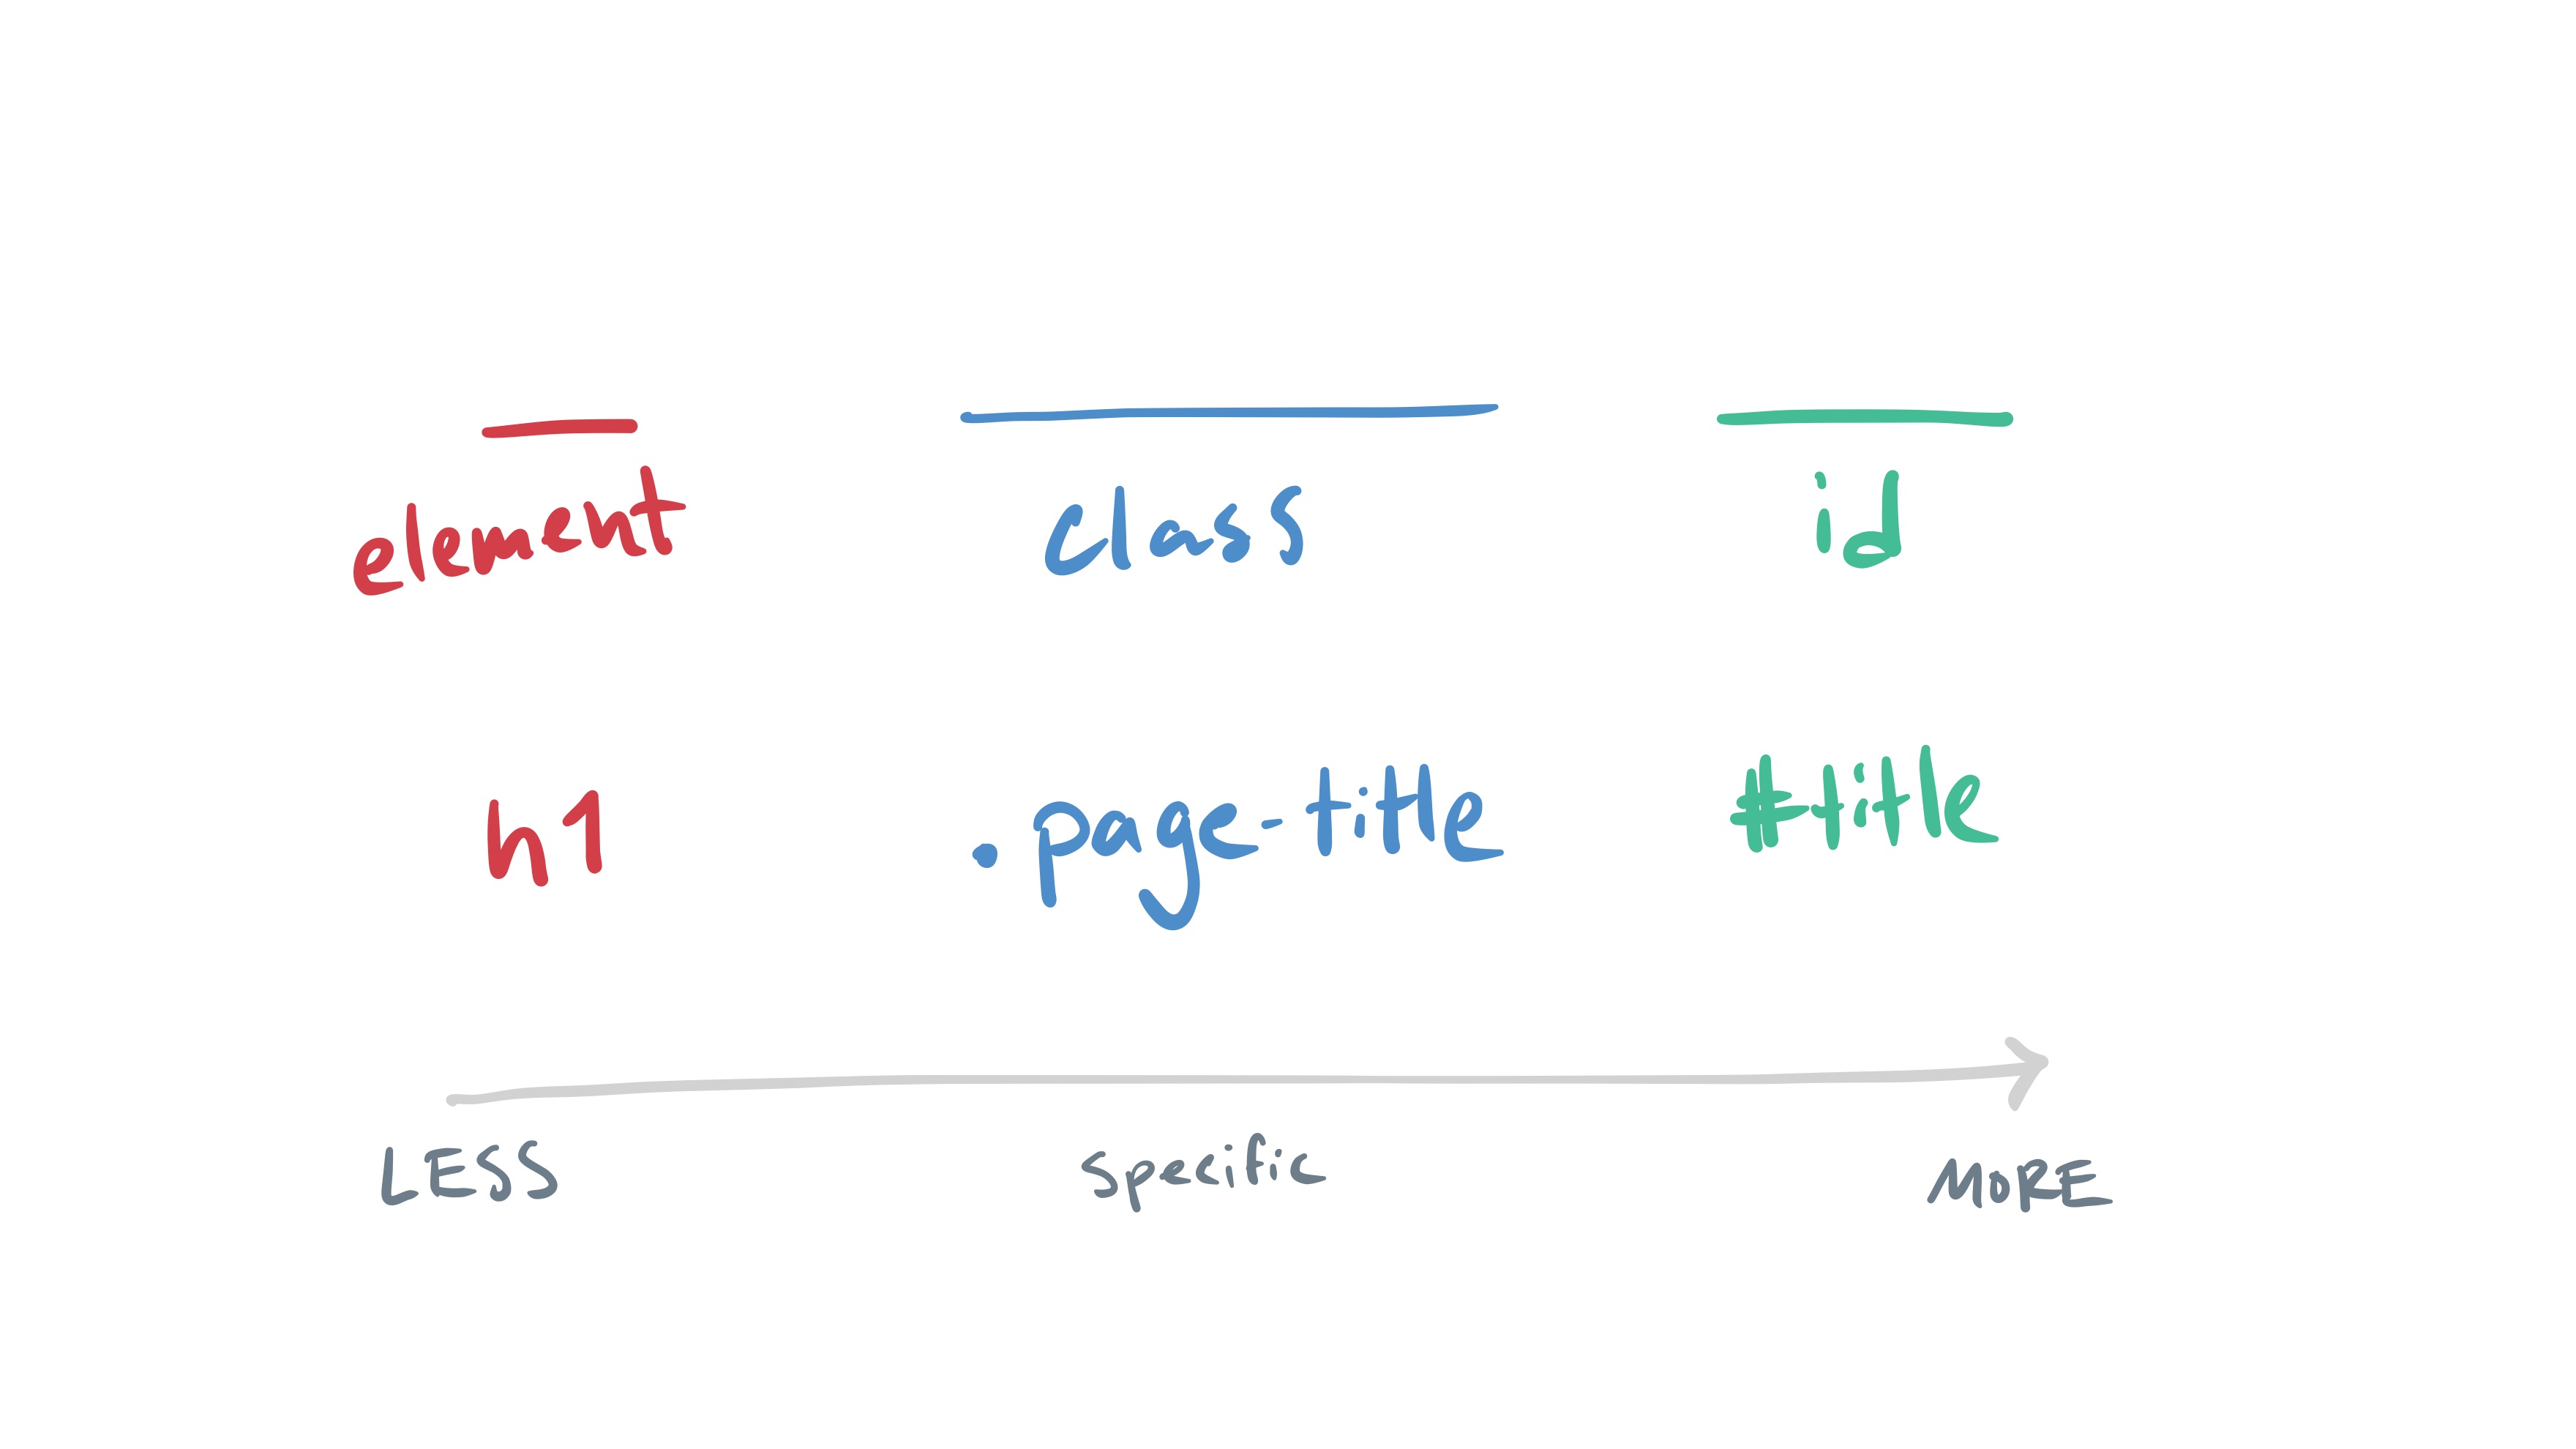 element class id
h1 .page-title #title
LESS Specific MORE